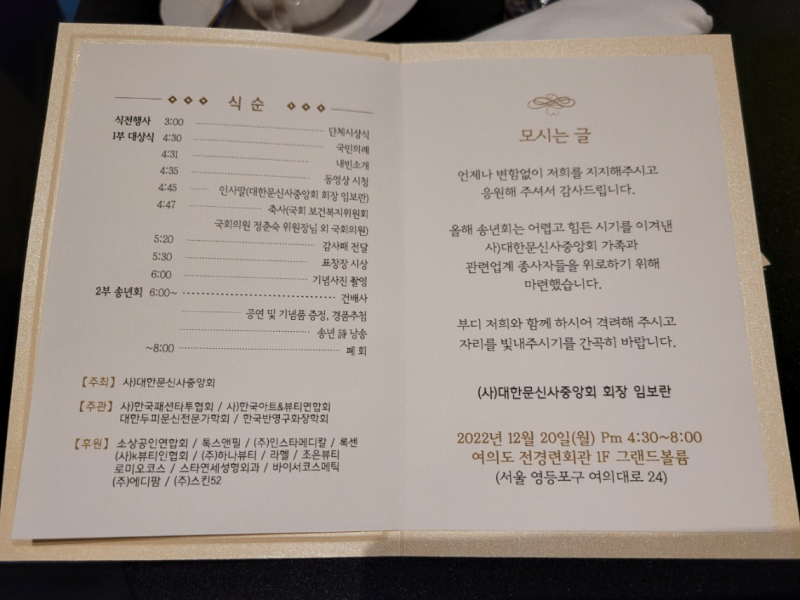 식 순
식전행사 3:00 단체시상식
1부 대상식 4:30 국민의례
4:31 내빈소개
4:35 동영상 시청
4:45 인사말(대한문신사중앙회 회장 임보란)
4:47 축사(국회 보건복지위원회
국회의원 정춘숙 위원장님 외 국회의원)
5:20 감사패 전달
5:30 표창장 시상
6:00 기념사진 촬영
2부 송년회 6:00~ 건배사
공연 및 기념품 증정, 경품추첨
송년 詩 낭송
~8:00 폐 회
【주최】 사)대한문신사중앙회
【주관】 사)한국패션타투협회 / 사)한국아트&뷰티연합회
대한두피문신전문가학회 / 한국반영구화장학회
【후원】 소상공인연합회 / 톡스앤필 / (주)인스타메디칼 / 록센
(사)k뷰티인협회 / (주)하나뷰티 / 라엘 / 조은뷰티
로미오코스 / 스타연세성형외과 / 바이서코스메틱
(주)에디팜 / (주)스킨52
모시는 글
언제나 변함없이 저희를 지지해주시고
응원해 주셔서 감사드립니다.
올해 송년회는 어렵고 힘든 시기를 이겨낸
사)대한문신사중앙회 가족과
관련업계 종사자들을 위로하기 위해
마련했습니다.
부디 저희와 함께 하시어 격려해 주시고
자리를 빛내주시기를 간곡히 바랍니다.
(사)대한문신사중앙회 회장 임보란
2022년 12월 20일(월) Pm 4:30~8:00
여의도 전경련회관 1F 그랜드볼륨
(서울 영등포구 여의대로 24)